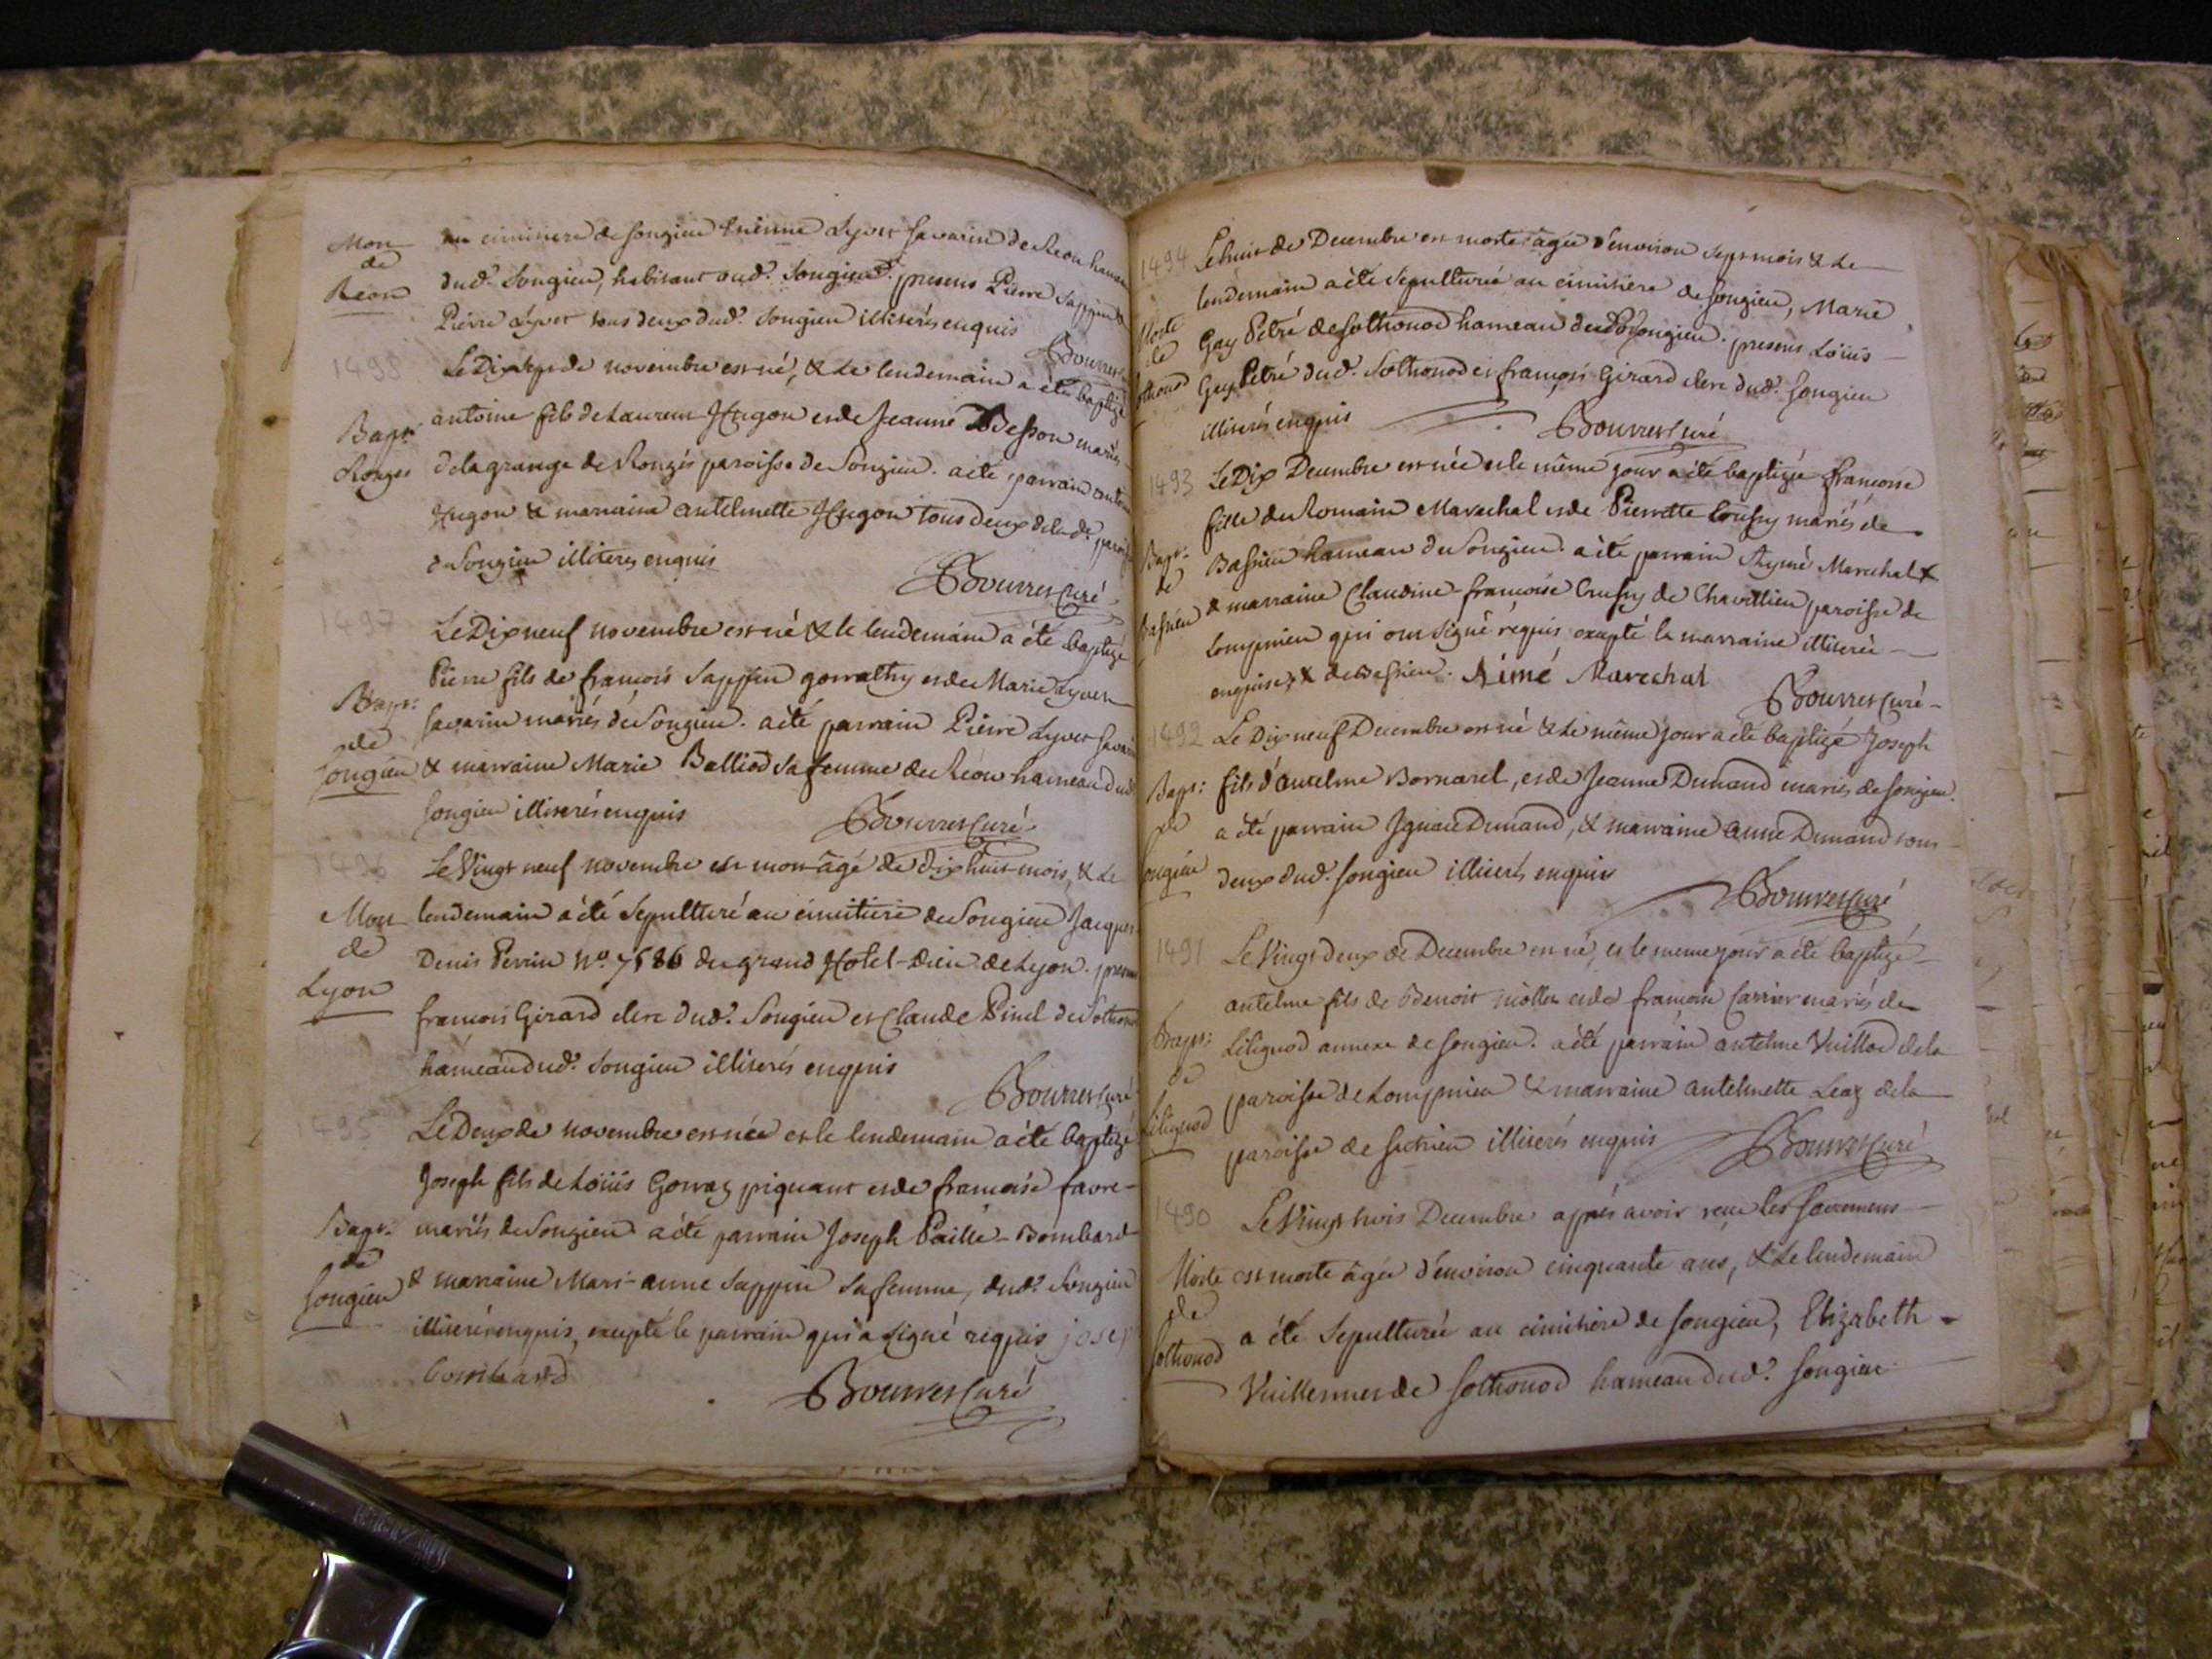 Mort
de
Reon
au cimitiere de Songieu Etienne Lyvet Savarin de Reon hameau
dud.t Songieu, habitant aud.t Songieu. presens Pierre Sappin &
Pierre Lyvet tous deux dud.t Songieu illiterés enquis
Bouvret
1498
Bapt:
Ronges
Le Dix sept de novembre est né, & Le lendemain a été baptizé
antoine fils de Laurent Hugon et de Jeanne Besson mariés
de la grange de Rongés paroisse de Songieu. a été parrain antoine
Hugon & marraine antelmette Hugon tous deux de lad.te paroisse
de Songieu illiterés enquis
Bouvret Curé
1497
Bapt:
de
Songieu
Le Dix neuf novembre est né & le lendemain a été baptizé
Pierre fils de françois Sappin gorrathy et de Marie Lyvet
Savarin mariés de Songieu. a été parrain Pierre Lyvet Savarin
& marraine Marie Balliod sa femme de Reon hameau dud.
Songieu illiterés enquis
Bouvret Curé
1496
Mort
de
Lyon
Le Vingt neuf novembre est mort âgé de dix huit mois, & Le
lendemain a été Sepulturé au cimitiere de Songieu Jacques
Denis Perrin N.o 7586 du grand Hotel-Dieu de Lyon. presens
françois Girard clerc dud.t Songieu et Claude Pinel de Sothonod
hameau dud.t Songieu illiterés enquis
Bouvret Curé
1495
Bapt:
de
Songieu
Le Deux de novembre est née et le lendemain a été baptizé
Joseph fils de Loüis Gorraz piquant et de françoise favre
mariés de Songieu a été parrain Joseph Paille-Bombard
& marraine Mari-anne Sappin sa femme, dud.t Songieu
illiterés enquis, excepté le parrain qui a signé requis josep
bombard
Bouvret Curé
1494
Morte
de
Sothonod
Le huit de Decembre est morte âgée d'environ sept mois & Le
lendemain a été Sepulturée au cimitiére de Songieu, Marie
Gay Petré de Sothonod hameau dud.t Songieu. presens Loüis
Gay Petré dud.t Sothonod et françois Girard clerc dud.t Songieu
illiterés enquis
Bouvret Curé
1493
Bapt:
de
Bassieu
Le Dix Decembre est née et le même jour a été baptizée françoise
fille de Romain Marechal et de Pierrette Crussy mariés de
Bassieu hameau de Songieu. a été parrain Aymé Marechal X
& marraine Claudine-françoise Crussy de Chavillieu paroisse de
Lompnieu qui ont signé requis excepté la marraine illiterée
enquise, X de Bessieu. Aimé Marechal
Bouvret Curé
1492
Bapt:
de
Songieu
Le Dix neuf Decembre est né & Le même jour a été baptizé Joseph
fils d'antelme Bornarel, et de Jeanne Dunand mariés de Songieu.
a été parrain Ignace Dunand, & marraine anne Dunand tous
deux dud.t Songieu illiterés enquis
Bouvret Curé
1491
Bapt:
de
Lilignod
Le Vingt deux de Decembre est né, et le meme jour a été baptizé
antelme fils de Benoit miollet et de françoise Carrier mariés de
Lilignod annexe de Songieu. a été parrain antelme Vuillod de la
paroisse de Lompnieu & marraine antelmette Leaz de la
paroisse de Sutrieu illiterés enquis
Bouvret Curé
1490
Morte
de
Sothonod
Le Vingt trois Decembre aprés avoir reçu les Sacremens
est morte âgée d'environ cinquante ans, & Le lendemain
a été Sepulturée au cimitiére de Songieu, Elizabeth
Vuillermet de Sothonod hameau dud.t Songieu